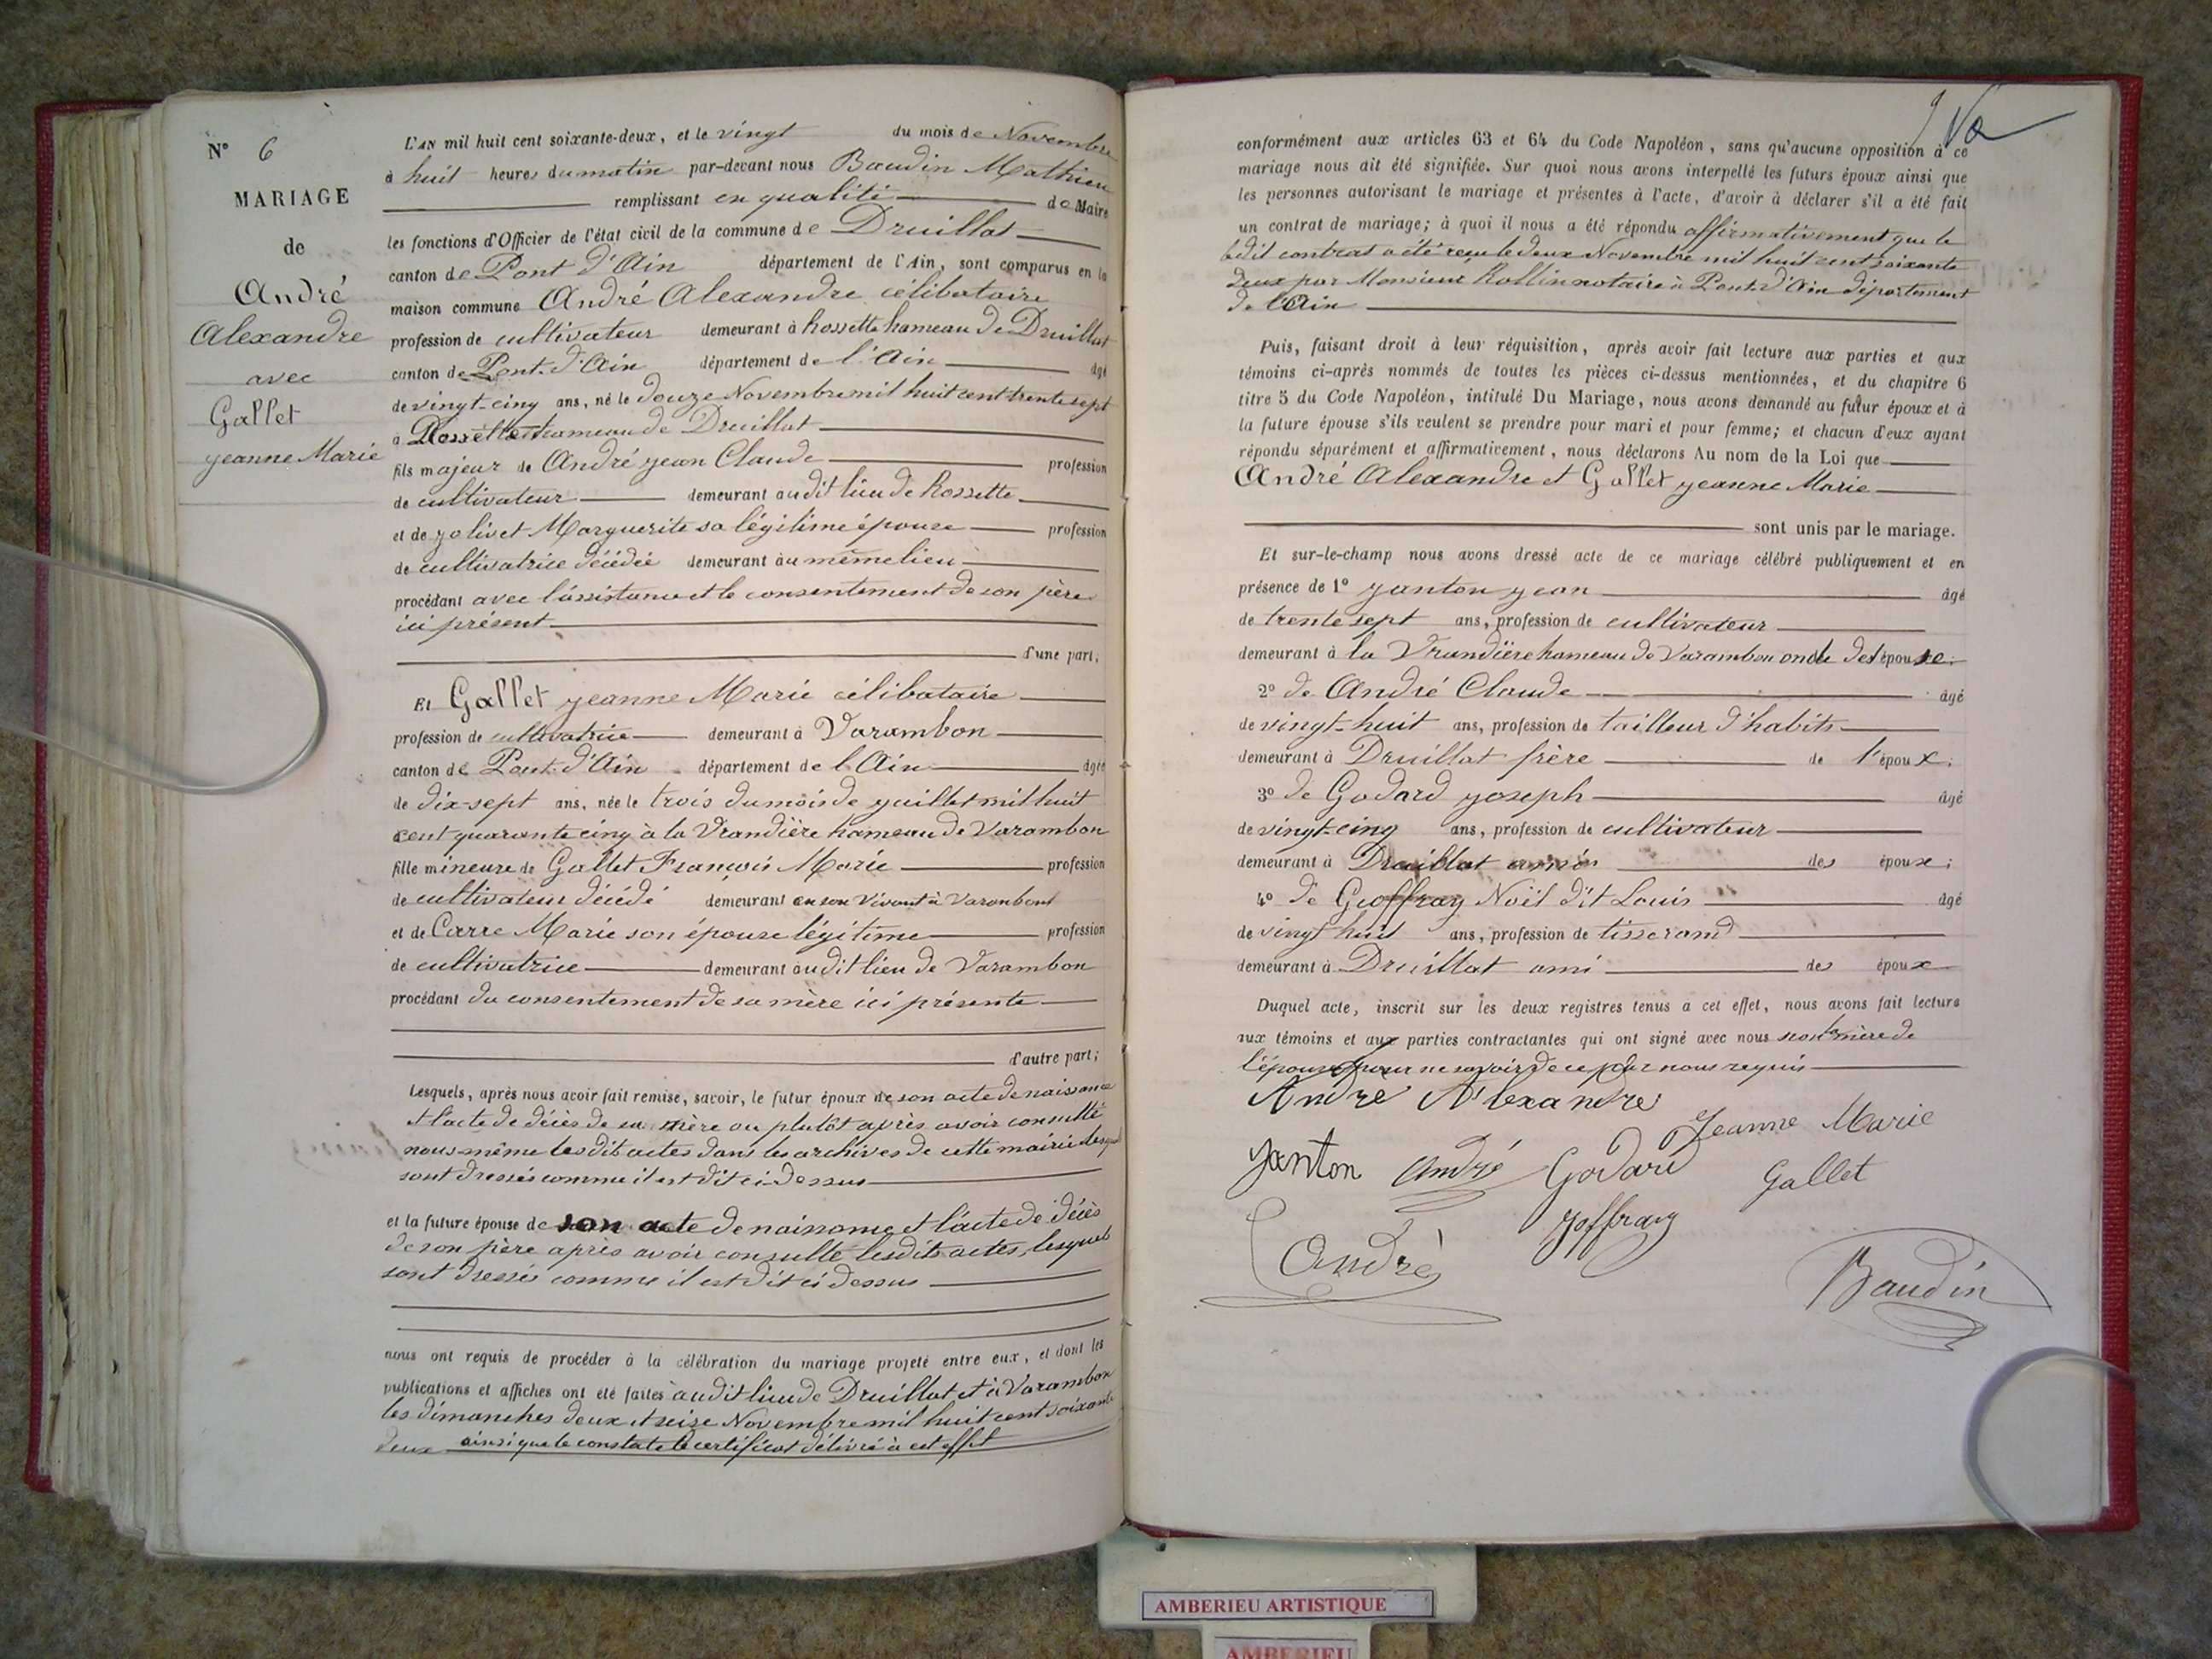 N° 6
MARIAGE
de
André
Alexandre
avec
Gallet
jeanne Marie
L'AN mil huit cent soixante-deux, et le vingt du mois de Novembre
à huit heures du matin par-devant nous Baudin Mathieu
remplissant en qualité de Maire
les fonctions d'Officier de l'état civil de la commune de Druillat
canton de Pont d'Ain département de l'Ain, sont comparus en la
maison commune André Alexandre célibataire
profession de cultivateur demeurant à Rossette hameau de Druillat
canton de Pont d'Ain département de l'Ain âgé
de vingt-cinq ans, né le douze Novembre mil huit cent trente sept
à Rossette hameau de Druillat
fils majeur de André jean Claude profession
de cultivateur demeurant audit lieu de Rossette
et de jolivet Marguerite sa légitime épouse profession
de cultivatrice décédée demeurant au même lieu
procédant avec l'assistance et le consentement de son père
ici présent
d'une part;
Et Gallet jeanne Marie célibataire
profession de cultivatrice demeurant à Varambon
canton de Pont d'Ain département de l'Ain âgée
de dix-sept ans, née le trois du mois de juillet mil huit
cent quarante cinq à la Vrandière hameau de Varambon
fille mineure de Gallet François Marie profession
de cultivateur décédé demeurant en son vivant à Varanbont
et de Carre Marie son épouse légitime profession
de cultivatrice demeurant audit lieu de Varambon
procédant du consentement de sa mère ici présente
d'autre part;
Lesquels, après nous avoir fait remise, savoir, le futur époux de son acte de naissance
et l'acte de décès de sa mère ou plutôt après avoir consulté
nous-même lesdits actes dans les archives de cette mairie
sont dressés comme il est dit ci-dessus
et la future épouse de son acte de naissance et l'acte de décès
de son père après avoir consulté lesdits actes, lesquels
sont dressés comme il est dit ci dessus
nous ont requis de procéder à la célébration du mariage projeté entre eux, et dont les
publications et affiches ont été faites audit lieu de Druillat et à Varambon
les dimanches deux et seize Novembre mil huit cent soixante
deux ainsi que le constate le certificat délivré à cet effet
conformément aux articles 63 et 64 du Code Napoléon, sans qu'aucune opposition à ce
mariage nous ait été signifiée. Sur quoi nous avons interpellé les futurs époux ainsi que
les personnes autorisant le mariage et présentes à l'acte, d'avoir à déclarer s'il a été fait
un contrat de mariage; à quoi il nous a été répondu affirmativement que le
ledit contrat a été reçu le deux Novembre mil huit cent soixante
deux par Monsieur Rollin notaire à Pont d'Ain département
de l'Ain
Puis, faisant droit à leur réquisition, après avoir fait lecture aux parties et aux
témoins ci-après nommés de toutes les pièces ci-dessus mentionnées, et du chapitre 6
titre 5 du Code Napoléon, intitulé Du Mariage, nous avons demandé au futur époux et à
la future épouse s'ils veulent se prendre pour mari et pour femme; et chacun d'eux ayant
répondu séparément et affirmativement, nous déclarons Au nom de la Loi que
André Alexandre et Gallet jeanne Marie
sont unis par le mariage.
Et sur-le-champ nous avons dressé acte de ce mariage célébré publiquement et en
présence de 1° janton jean âgé
de trente sept ans, profession de cultivateur
demeurant à la Vrandière hameau de Varambon oncle de l'épouse;
2° de André Claude âgé
de vingt-huit ans, profession de tailleur d'habits
demeurant à Druillat frère de l'époux;
3° de Godard joseph âgé
de vingt-cinq ans, profession de cultivateur
demeurant à Druillat ami des époux;
4° de Geoffray Noël dit Louis âgé
de vingt huit ans, profession de tisserand
demeurant à Druillat ami des époux
Duquel acte, inscrit sur les deux registres tenus à cet effet, nous avons fait lecture
aux témoins et aux parties contractantes qui ont signé avec nous non la mère de
l'épouse pour ne savoir de ce par nous requis
André Alexandre
Jeanne Marie
janton André Godard Gallet
joffray
André
Baudin
AMBERIEU ARTISTIQUE
AMBERIEU